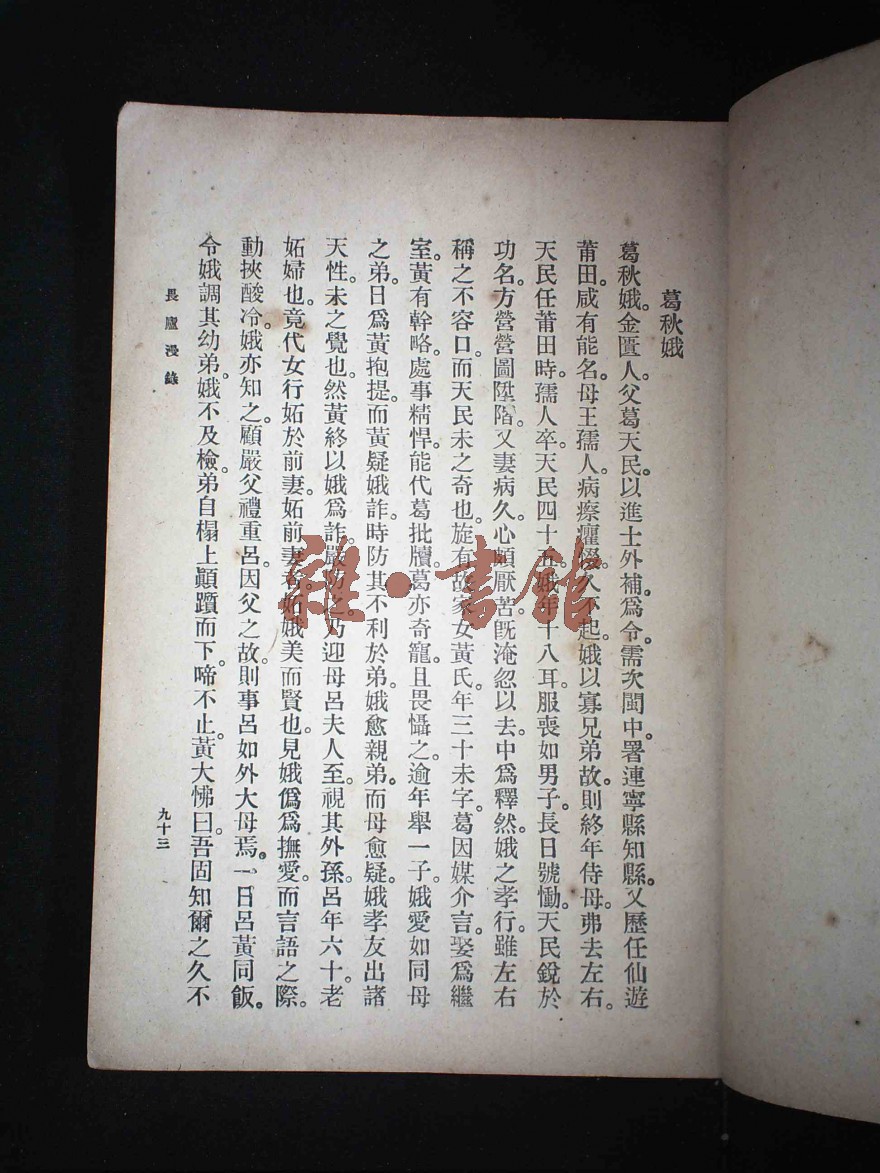 葛秋娥
葛秋娥。金匱人。父葛天民。以進士外補爲令。需次閩中。署連寧縣知縣。又歷任仙遊
莆田。咸有能名。母王孺人。病瘵癯𢣷。久不起。娥以寡兄弟故。則終年侍母。弗去左右。
天民任莆田時。孺人卒。天民四十五。娥年十八耳。服喪如男子。長日號慟。天民銳於
功名。方營營圖陞階。又妻病久。心頗厭苦。旣淹忽以去。中爲釋然。娥之孝行。雖左右
稱之不容口。而天民未之奇也。旋有故家女黃氏。年三十未字。葛因媒介言。娶爲繼
室。黃有幹略。處事精悍。能代葛批牘。葛亦奇寵。且畏懾之。逾年舉一子。娥愛如同母
之弟。日爲黃抱提。而黃疑娥詐。時防其不利於弟。娥愈親弟。而母愈疑。娥孝友出諸
天性。未之覺也。然黃終以娥爲詐。嚴防之。乃迎母呂夫人至。視其外孫。呂年六十。老
妬婦也。竟代女行妬於前妻。妬前妻者。妬娥美而賢也。見娥僞爲撫愛。而言語之際。
動挾酸冷。娥亦知之。顧嚴父禮重呂。因父之故。則事呂如外大母焉。一日呂黃同飯。
令娥調其幼弟。娥不及檢。弟自榻上顚躓而下。啼不止。黃大怫曰。吾固知爾之久不
長廬漫錄
九十三
雜·書館